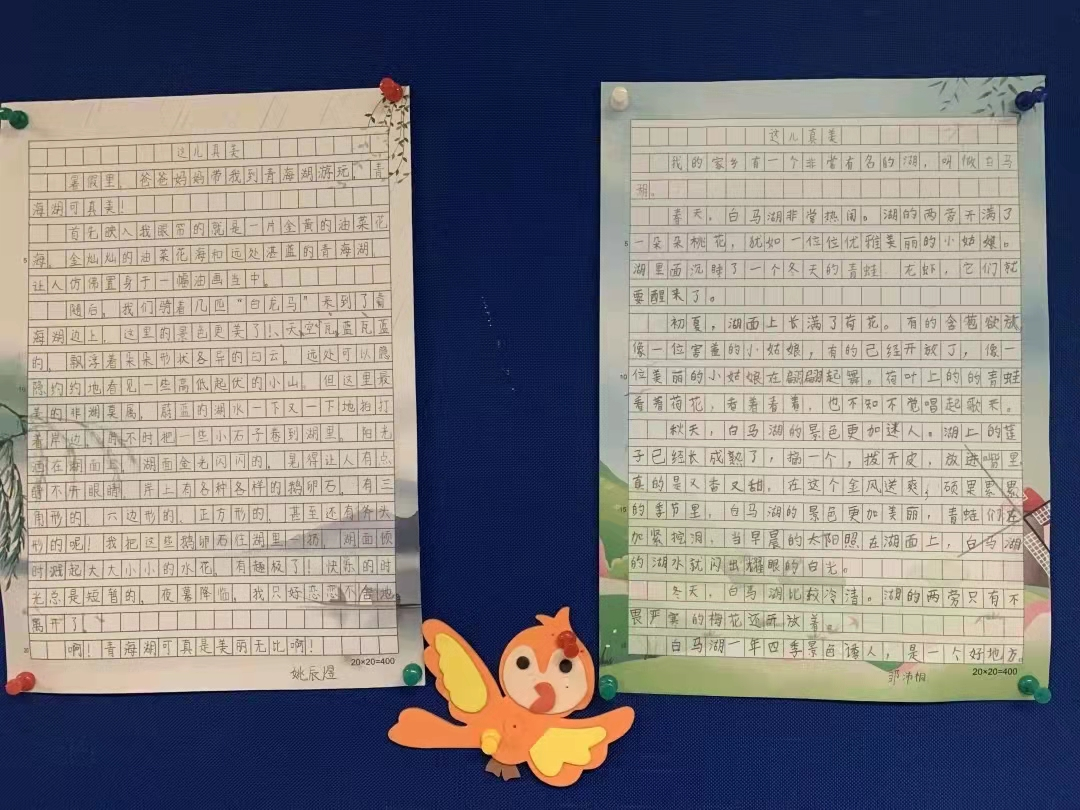 这儿真美
暑假里,爸爸妈妈带我到青海湖游玩,青
海湖可真美!
首先映入我眼帘的就是一片金黄的油菜花
海。金灿灿的油菜花海和远处湛蓝的青海湖,
让人仿佛置身于一幅油画当中。
随后,我们骑着几匹“白龙马”来到了青
海湖边上,这里的景色更美了!天空瓦蓝瓦蓝
的,飘浮着朵朵形状各异的白云。远处可以隐
隐约约地看见一些高低起伏的小山。但这里最
美的非湖莫属,蔚蓝的湖水一下又一下地拍打
着岸边,时不时把一些小石子卷到湖里。阳光
洒在湖面上,湖面金光闪闪的,晃得让人有点
睁不开眼睛。岸上有各种各样的鹅卵石,有三
角形的、六边形的、正方形的,甚至还有斧头
形的呢!我把这些鹅卵石往湖里一扔,湖面顿
时溅起大大小小的水花。有趣极了!快乐的时
光总是短暂的,夜幕降临,我只好恋恋不舍地
离开了。
啊!青海湖可真是美丽无比啊!
姚辰煜
20×20=400
5
10
这儿真美
我的家乡有一个非常有名的湖,叫做白马
湖。
春天,白马湖非常热闹。湖的两旁开满了
一朵朵桃花,犹如一位位优雅美丽的小姑娘。
湖里面沉睡了一个冬天的青蛙、龙虾,它们就
要醒来了。
初夏,湖面上长满了荷花。有的含苞欲放,
像一位害羞的小姑娘,有的已经开放了,像一
位美丽的小姑娘在翩翩起舞。荷叶上的的青蛙
看着荷花,看着看着,也不知不觉唱起歌来。
秋天,白马湖的景色更加迷人。湖上的莲
子已经长成熟了,摘一个,拨开皮,放进嘴里
真的是又香又甜。在这个金风送爽,硕果累累
的季节里,白马湖的景色更加美丽,青蛙们在
加紧挖洞,当早晨的太阳照在湖面上,白马湖
的湖水就闪出耀眼的白光。
冬天,白马湖比较冷清。湖的两旁只有不
畏严寒的梅花还开放着。
白马湖一年四季景色诱人,是一个好地方。
20×20=400
5
10
15